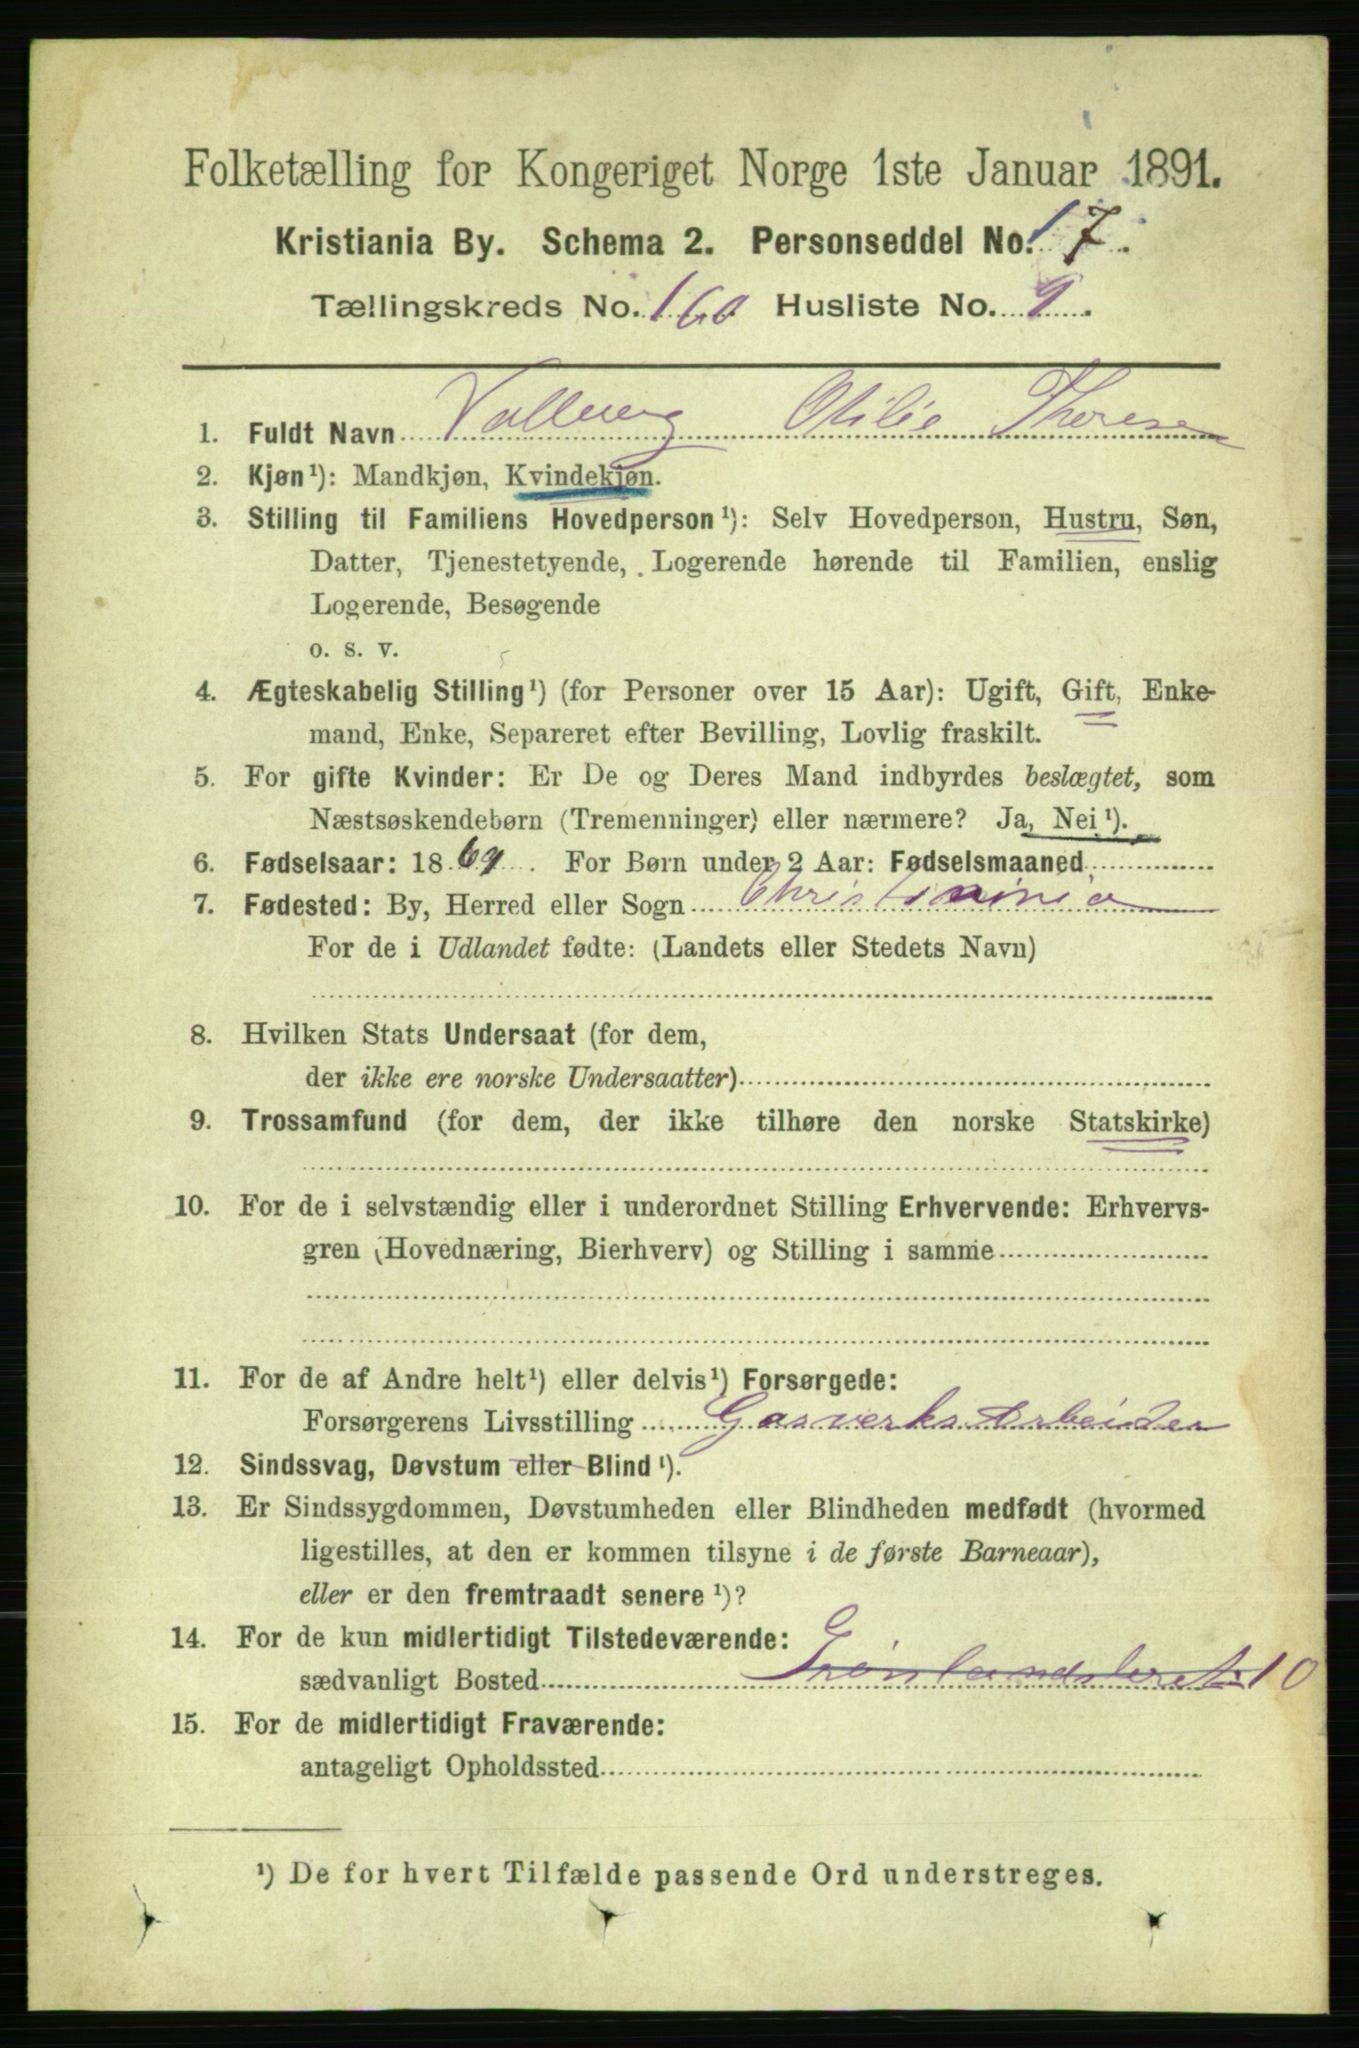 Folketælling for Kongeriget Norge 1ste Januar 1891.
Kristiania By. Schema 2. Personseddel No. 17.
Tællingskreds No. 160 Husliste No. 9.
1. Fuldt Navn Otilie Therese
2. Kjøn¹): Mandkjøn, Kvindekjøn.
3. Stilling til Familiens Hovedperson¹): Selv Hovedperson, Hustru, Søn,
Datter, Tjenestetyende, Logerende hørende til Familien, enslig
Logerende, Besøgende
o. s. v.
4. Ægteskabelig Stilling¹) (for Personer over 15 Aar): Ugift, Gift, Enke-
mand, Enke, Separeret efter Bevilling, Lovlig fraskilt.
5. For gifte Kvinder: Er De og Deres Mand indbyrdes beslægtet, som
Næstsøskendebørn (Tremenninger) eller nærmere? Ja, Nei¹).
6. Fødselsaar: 1869. For Børn under 2 Aar: Fødselsmaaned
7. Fødested: By, Herred eller Sogn Christiania
For de i Udlandet fødte: (Landets eller Stedets Navn)
8. Hvilken Stats Undersaat (for dem,
der ikke ere norske Undersaatter)
9. Trossamfund (for dem, der ikke tilhøre den norske Statskirke)
10. For de i selvstændig eller i underordnet Stilling Erhvervende: Erhvervs-
gren (Hovednæring, Bierhverv) og Stilling i samme
11. For de af Andre helt¹) eller delvis¹) Forsørgede:
Forsørgerens Livsstilling Gasverks Arbeider
12. Sindssvag, Døvstum eller Blind¹).
13. Er Sindssygdommen, Døvstumheden eller Blindheden medfødt (hvormed
ligestilles, at den er kommen tilsyne i de første Barneaar),
eller er den fremtraadt senere¹)?
14. For de kun midlertidigt Tilstedeværende:
sædvanligt Bosted Grønlandsleret 10
15. For de midlertidigt Fraværende:
antageligt Opholdssted
¹) De for hvert Tilfælde passende Ord understreges.